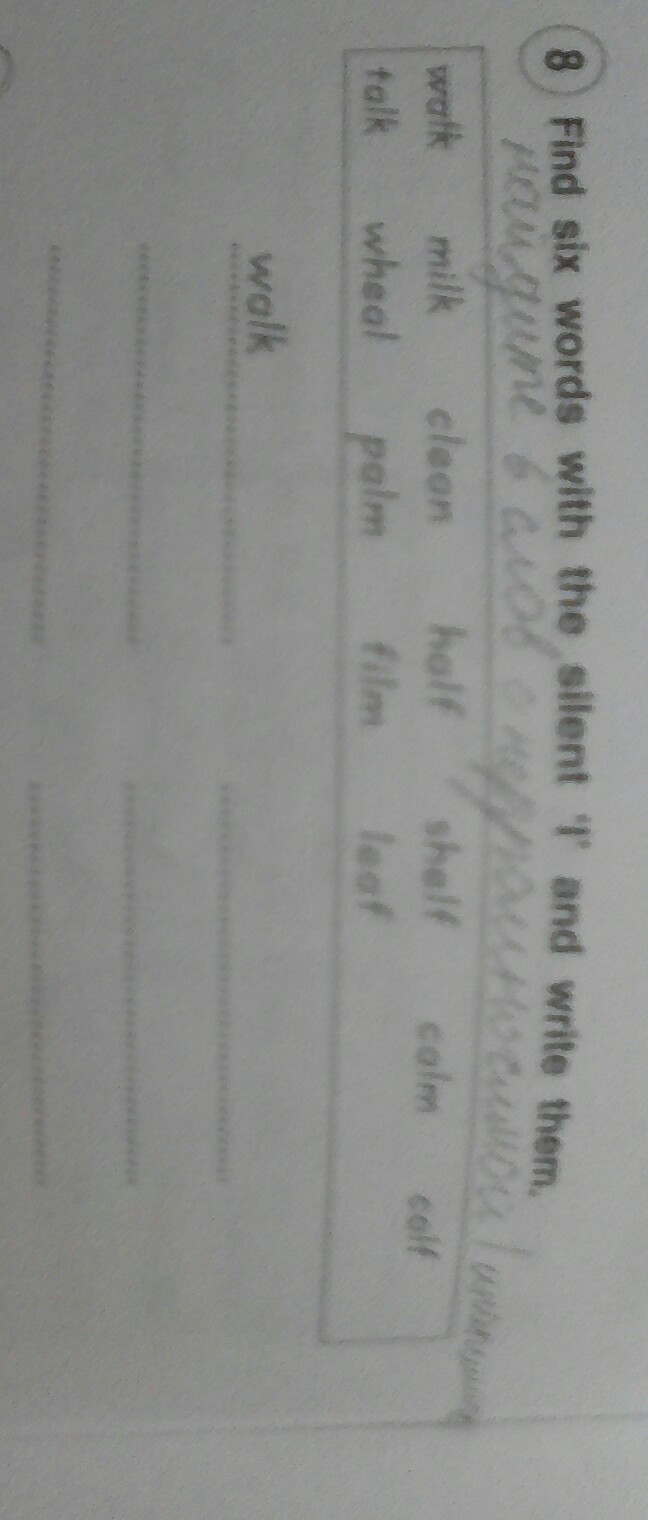 8 Find six words with the silent 'l' and write them.
найдите 6 слов с
walk milk clean half shelf calm calf
talk wheal palm film leaf
walk